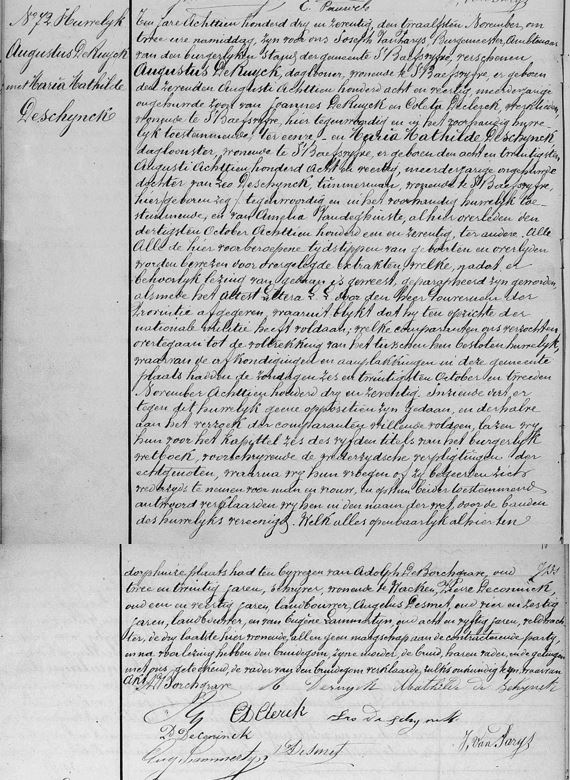 C. Pauwels
N° 72 Huwelyk
Augustus DeRuyck
met Maria Mathilde
Deschynck
Ten jare Achttien honderd dry en zeventig, den twaalfsten November, om
twee ure namiddag, zyn voor ons Joseph Van Parys Burgemeester, Ambtenaar
van den burgerlyken stand der gemeente St Baefsvyve, verschenen
Augustus DeRuyck, dagloonr, wonende te St Baefsvyve, er geboren
den zevenden Augusti Achttien honderd acht en veertig, meerderjarige
ongehuwde zoon van Joannes DeRuyck en Coleta DeClerck,
wonende te St Baefsvyve, hier tegenwoordig en in het voorhandig huwe-
lyk toestemmende, ter eenre – en Maria Mathilde Deschynck
dagloonster, wonende te St Baefsvyve, er geboren den acht en twintigsten
Augusti Achttien honderd acht en veertig, meerderjarige ongehuwde
dochter van Leo Deschynck, timmerman, wonende te St Baefsvyve,
hier tegenwoordig en in het voorhandig huwelyk toe-
stemmende, en van Amelia Vandeghinste, alhier overleden den
dertigsten October Achttien honderd een en zeventig, ter andere. Alle
Alle de hier voorberoepene tydstippen van geboorten en overlyden
worden bewezen door overgelegde extrakten, welke, nadat er
behoorlyk lezing van gedaan is geweest, geparafeerd zyn geworden,
alsmede het attest Littera door den heer Gouverneur der
Provintie afgegeven, waaruit blykt dat hy ten opzichte der
nationale militie heeft voldaan; welke comparanten ons verzochten
overtegaan tot de voltrekking van het tusschen hen besloten huwelyk,
waarvan de afkondigingen en aanplakkingen in deze gemeente
plaats hadden de zondagen zes en twintigsten October en tweeden
November Achttien honderd dry en zeventig. Inziende dat er
tegen dit huwelyk geene oppositien zyn gedaan, en derhalve
aan het verzoek der comparanten willende voldoen, lazen wy
hun voor het kapittel zes des vyfden titels van het burgerlyk
wetboek, voorschryvende de wederzydsche verpligtingen der
echtgenoten, waarna wy hun vroegen of zy begeeren zich
wederzyds te nemen voor man en vrouw, en op hun beider toestemmend
antwoord verklaarden wy hen in den naam der wet, door de banden
des huwelyks vereenigd. Welk alles openbaarlyk alhier ten
dorphuize plaats had ten bywezen van Adolph DeBorchgrave, oud
twee en twintig jaren, schryver, wonende te Wacken, Pieire Deconinck,
oud een en veertig jaren, landbouwer, Angelus Desmet, oud vier en zestig
jaren, landbouwer, en van Eugene Lammertyn, oud acht en vyftig jaren, veldwach-
ter, de dry laatste hier wonende, allen geen maagschap aan de contracteerende party,
en na voorlezing hebben den bruidegom, zyne moeder, de bruid, haren vader, en de getuigen
met ons, geteekend, de vader van den bruidegom verklaarde, zulks onkundig te zyn, waarvan
Akt.
A. Borchgrave
A Deruyck
Mathilde de Schynck
C DClerck
Leo de schynck
D DeConinck
J. Van Parys
Eug Lammertyn
A Desmet